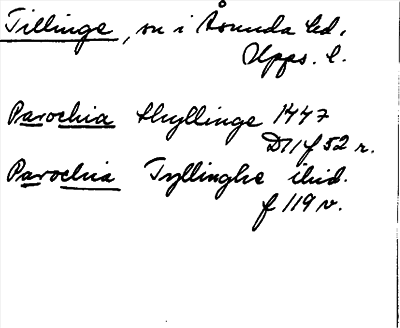 Tillinge, sn i Åsunda hd.
Upps. l.
Parochia Thyllinge 1447
D11 f 52 r.
Parochia Tyllinghe ibid.
f 119 v.